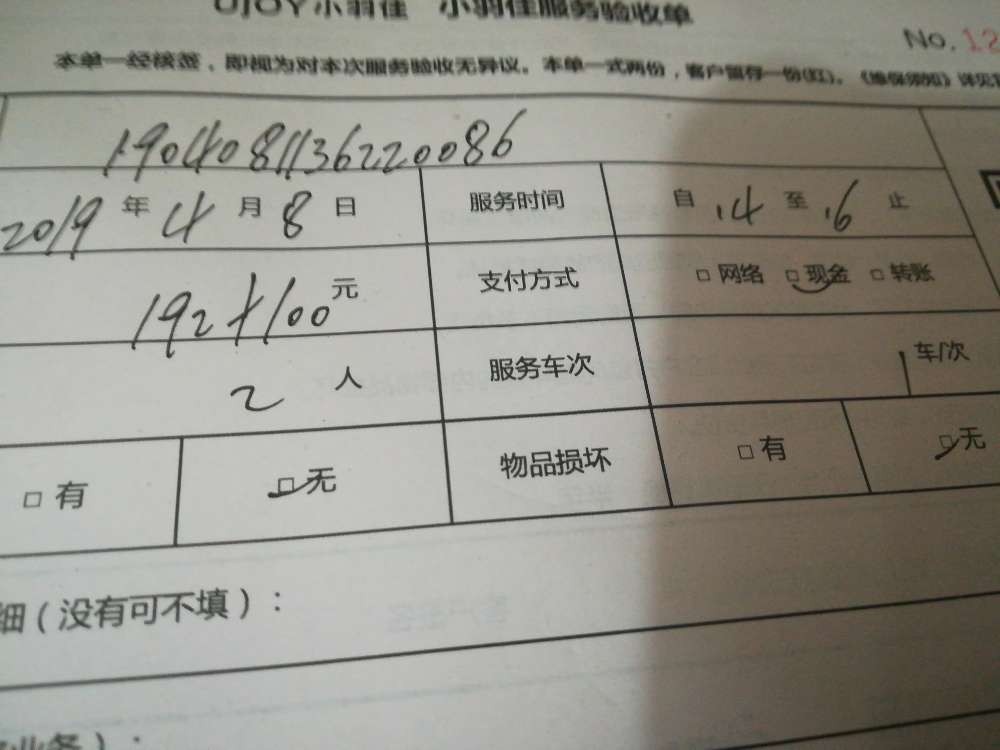 UJOY小羽佳 小羽佳服务验收单
No. 12
本单一经核签，即视为对本次服务验收无异议。本单一式两份，客户留存一份(红)。《维保须知》详见
1904081136220086
2019 年 4 月 8 日 服务时间 自 14 至 16 止
192+100 元 支付方式 □ 网络 □ 现金 □ 转账
2 人 服务车次 1 车/次
□ 有 □ 无 物品损坏 □ 有 □ 无
细（没有可不填）：
业务）：